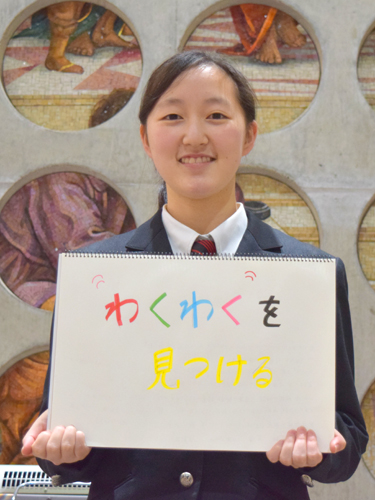 "わくわく"を
見つける